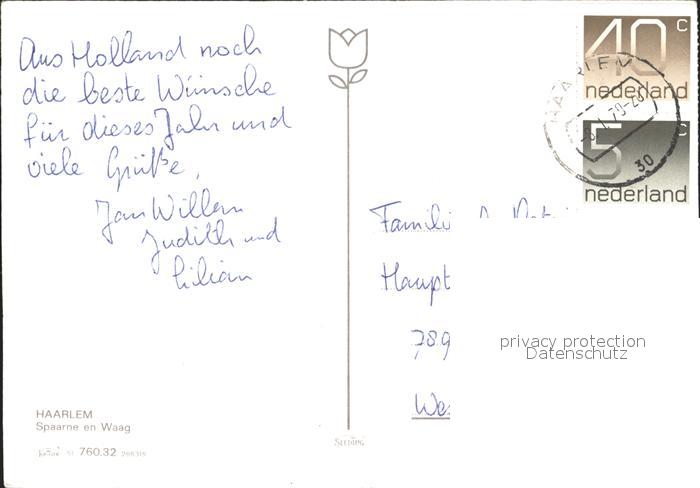 Aus Holland noch
die beste Wünsche
für dieses Jahr und
viele Grüße,
Jan Willem
Judith und
Lilian
HAARLEM
Spaarne en Waag
760.32
40 c
nederland
HAARLEM
30
5 c
nederland
Famili
Haupt
789
We
privacy protection
Datenschutz